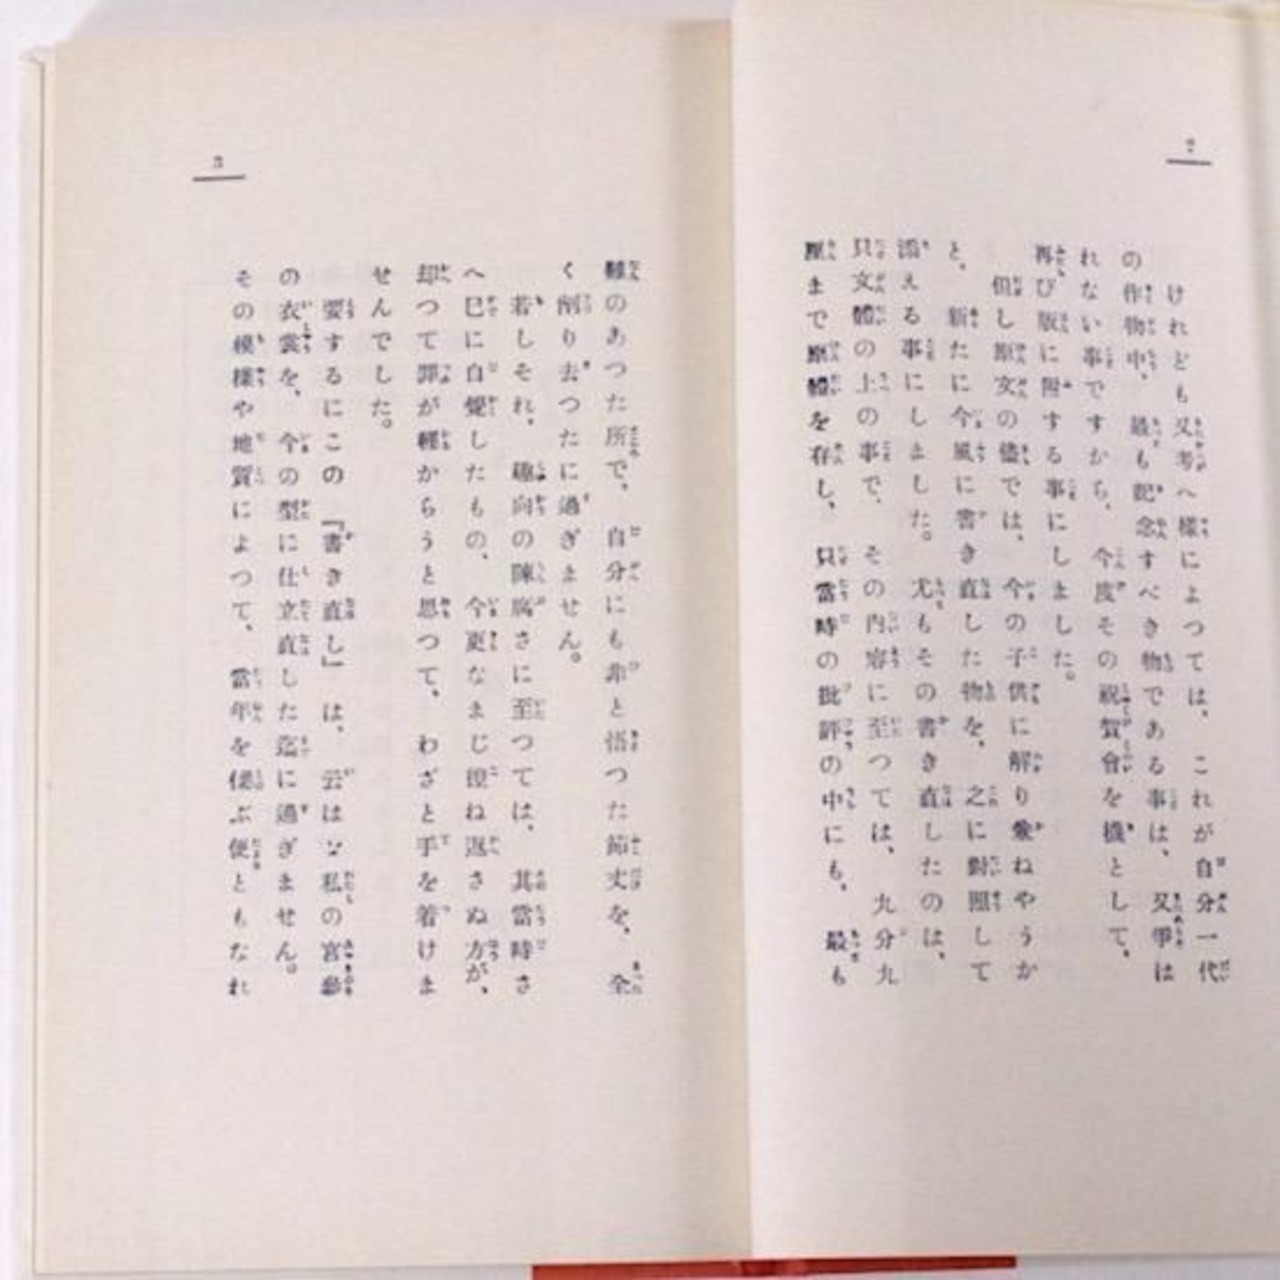 2
けれども又考へ様によつては、これが自分一代
の作物中、最も記念すべき物である事は、又爭は
れない事ですから、今度その祝賀會を機として、
再び版に附する事にしました。
但し原文の儘では、今の子供に解り兼ねやうか
と、新たに今風に書き直した物を、之に對照して
添える事にしました。尤もその書き直したのは、
只文體の上の事で、その内容に至つては、九分九
厘まで原體を存し、只當時の批評の中にも、最も
3
難のあつた所で、自分にも非と悟つた節丈を、全
く削り去つたに過ぎません。
若しそれ、趣向の陳腐さに至つては、其當時さ
へ已に自覺したもの、今更なまじ捏ね返さぬ方が、
却つて罪が輕からうと思つて、わざと手を着けま
せんでした。
要するにこの『書き直し』は、云はゞ私の宮參
の衣裳を、今の型に仕立直した迄に過ぎません。
その模樣や地質によつて、當年を偲ぶ便ともなれ